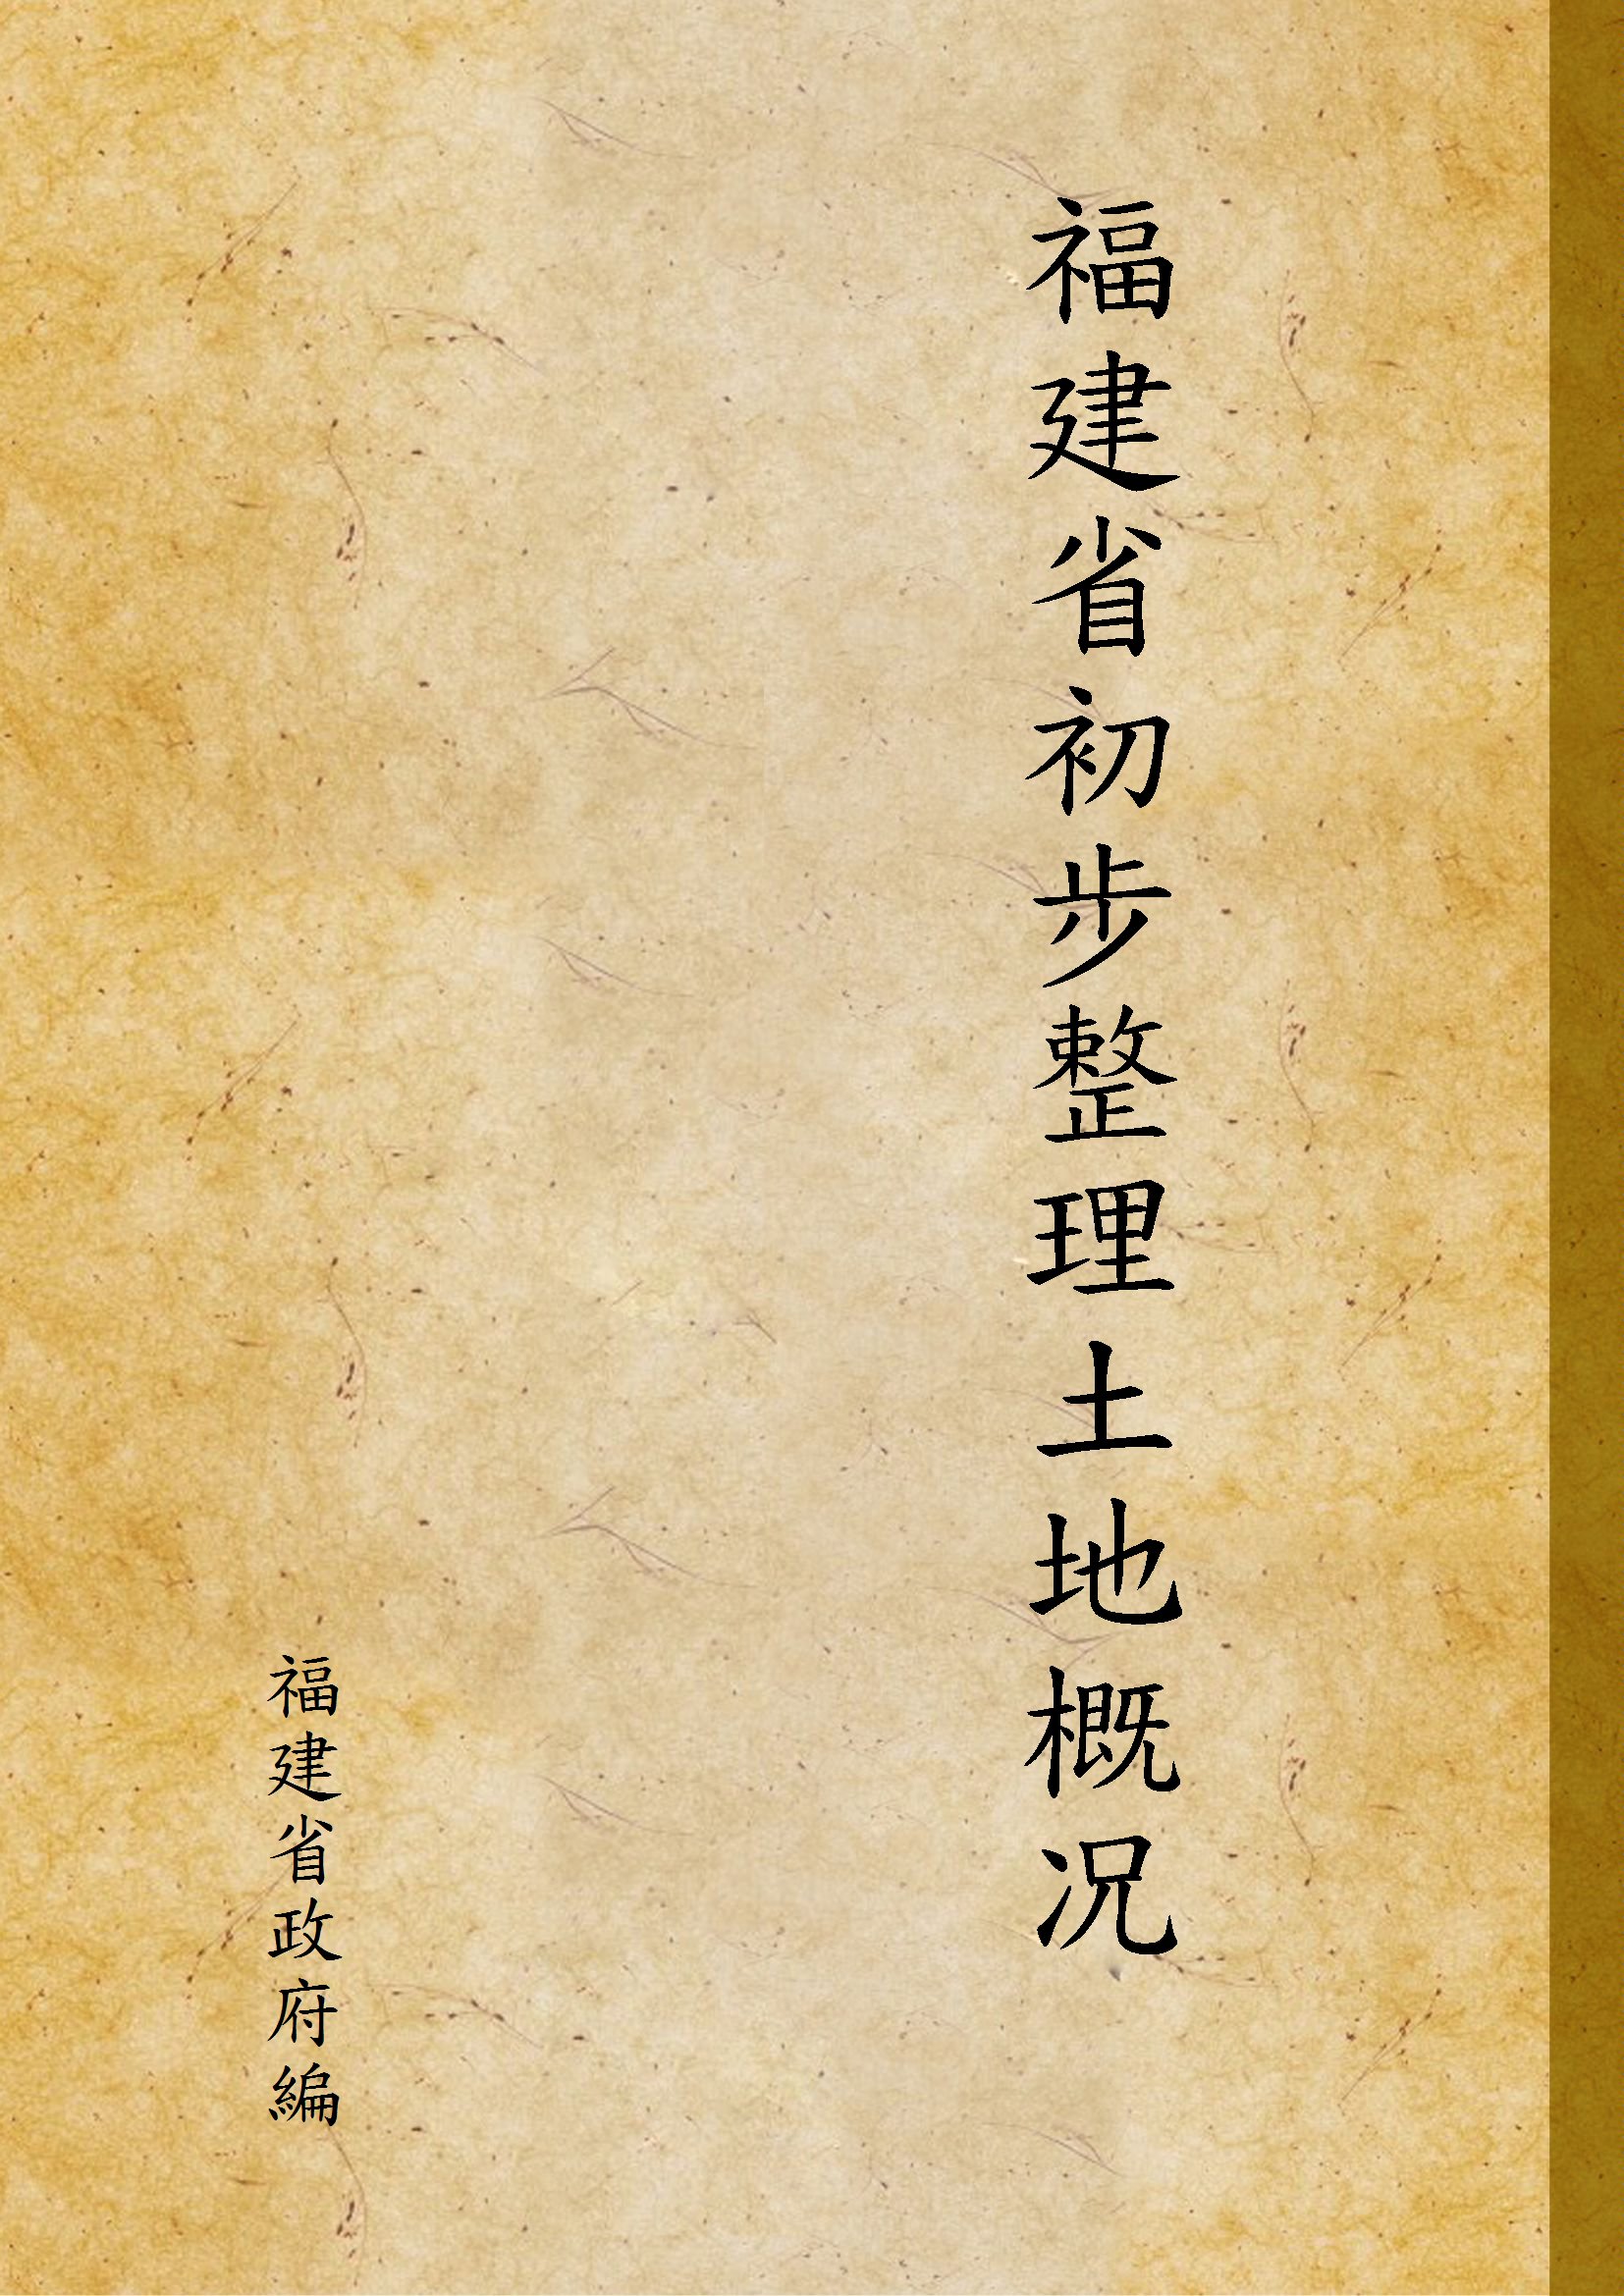 福建省初步整理土地概况
福建省政府編